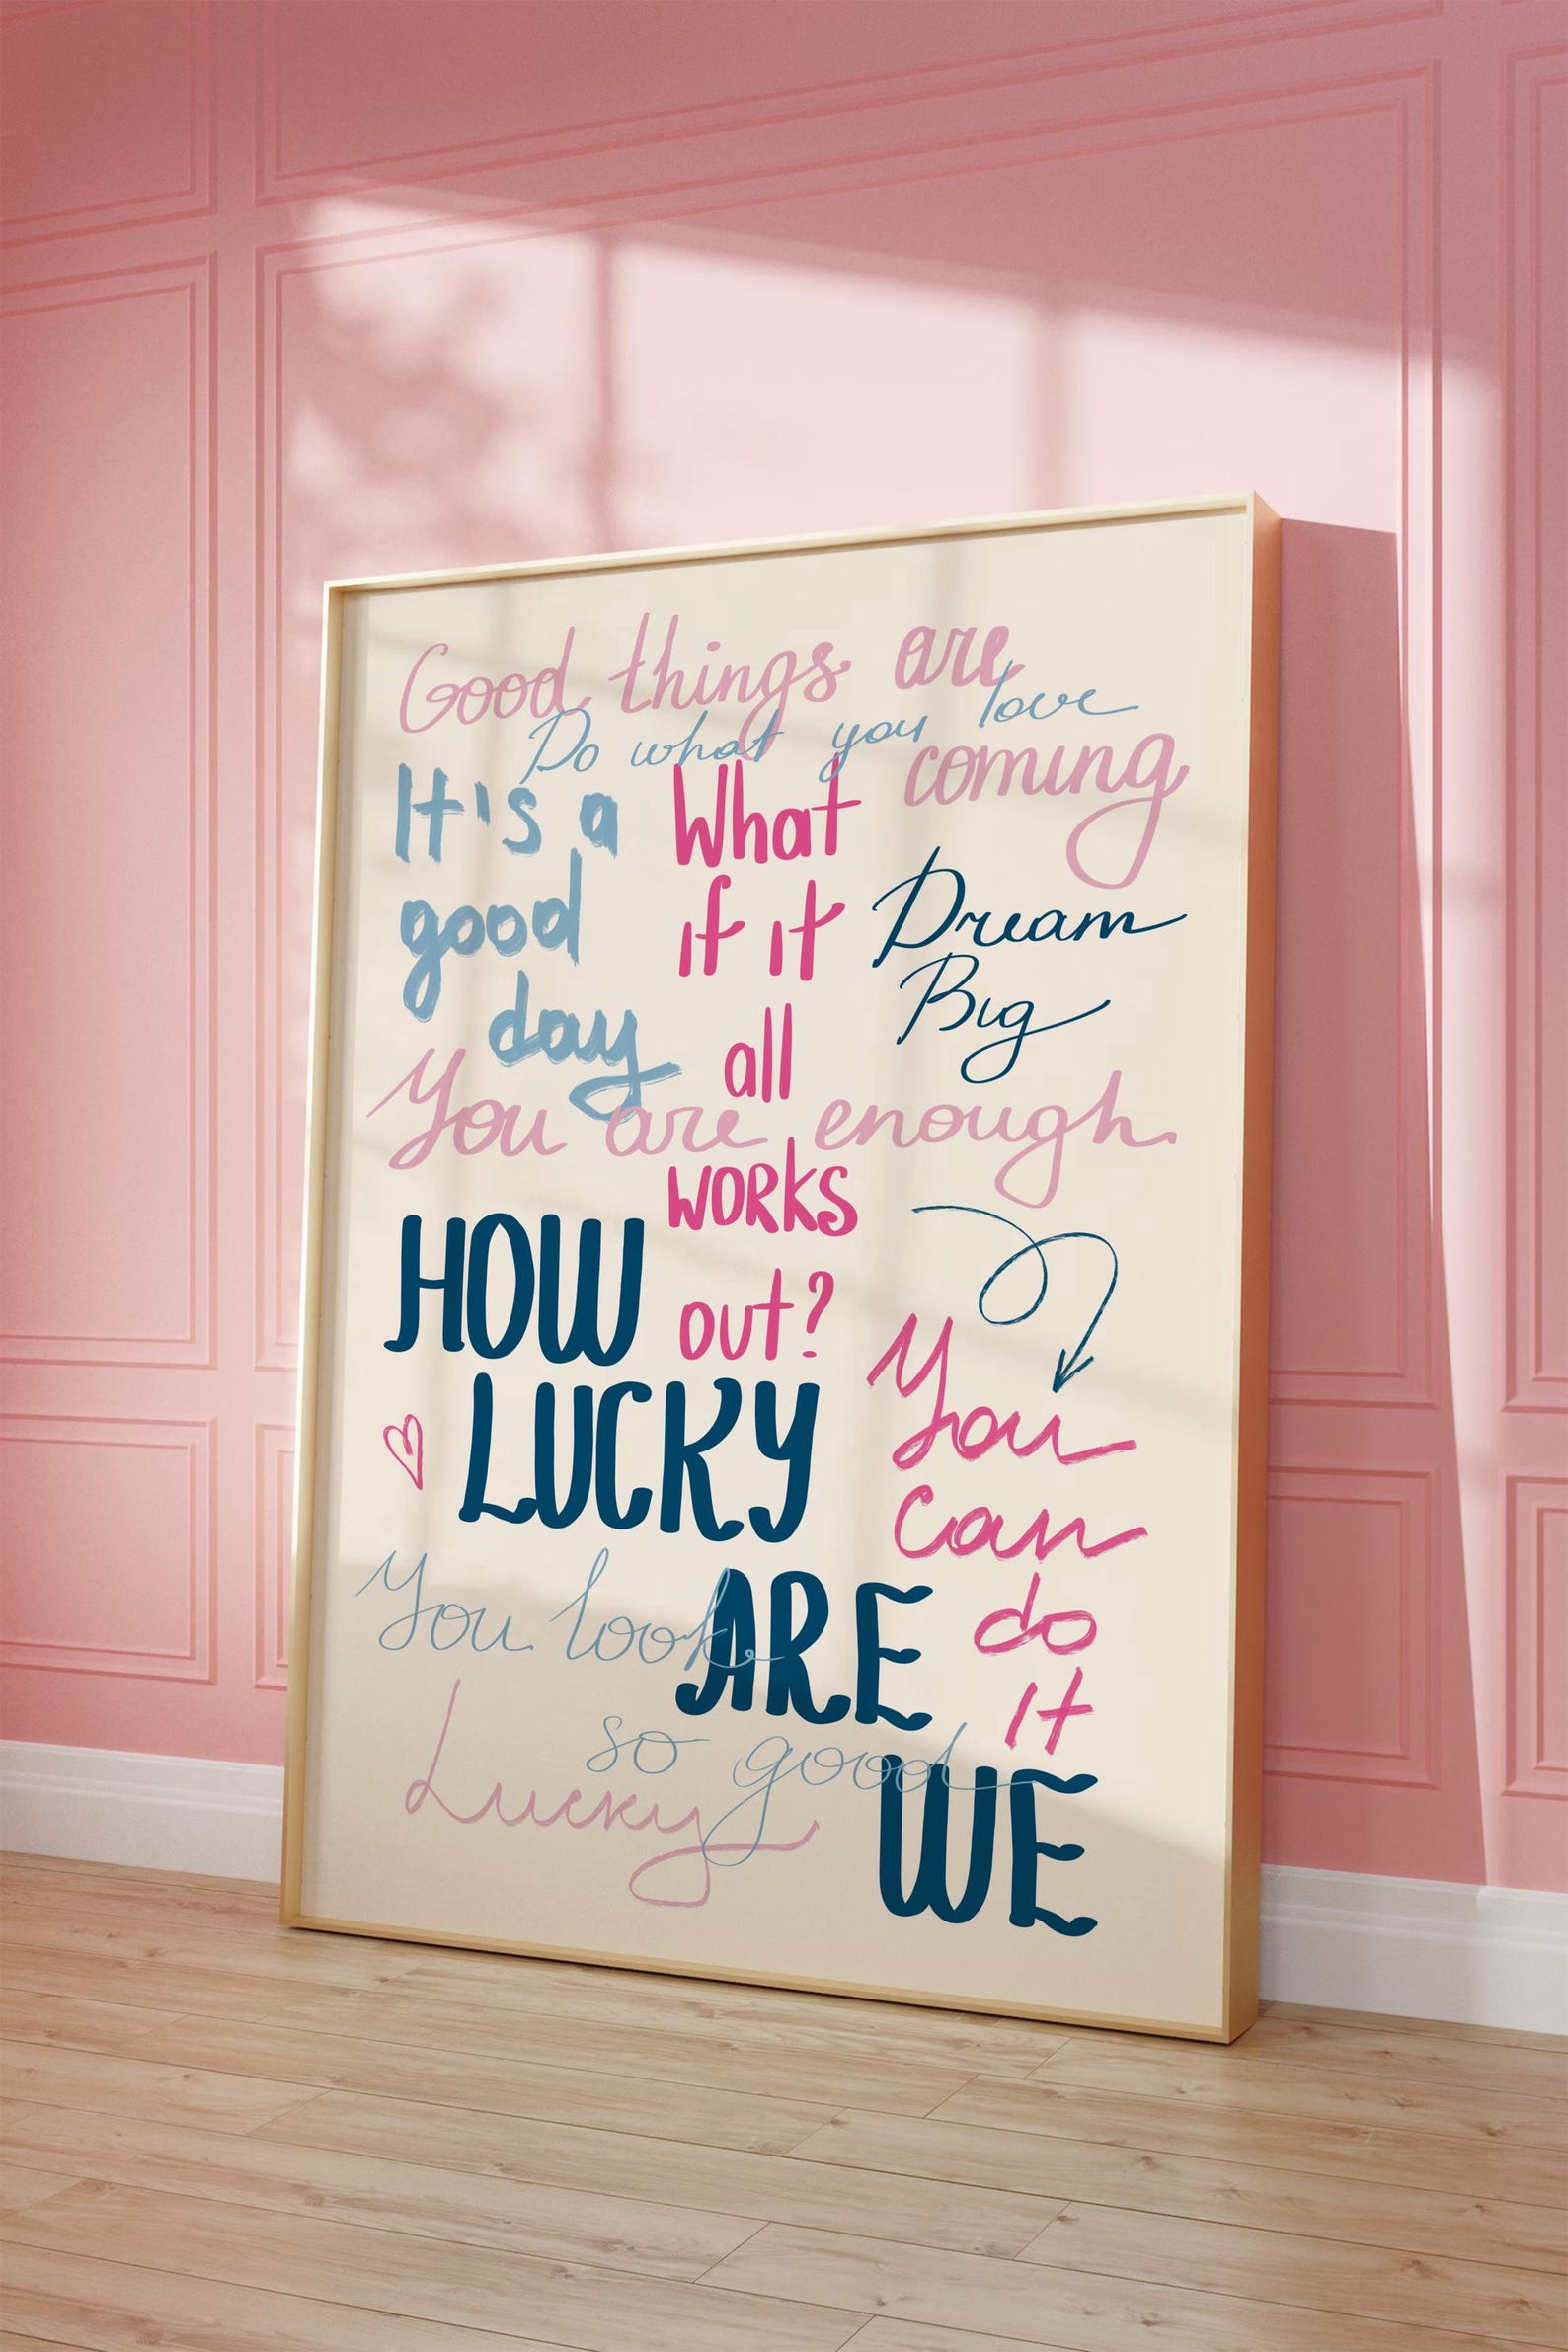 Good things are
coming
Do what you love
It's a
good
day
What
if it
all
works
out?
Dream
Big
You are enough.
HOW
LUCKY
ARE
WE
You
can
do
it
You look
so good
Lucky